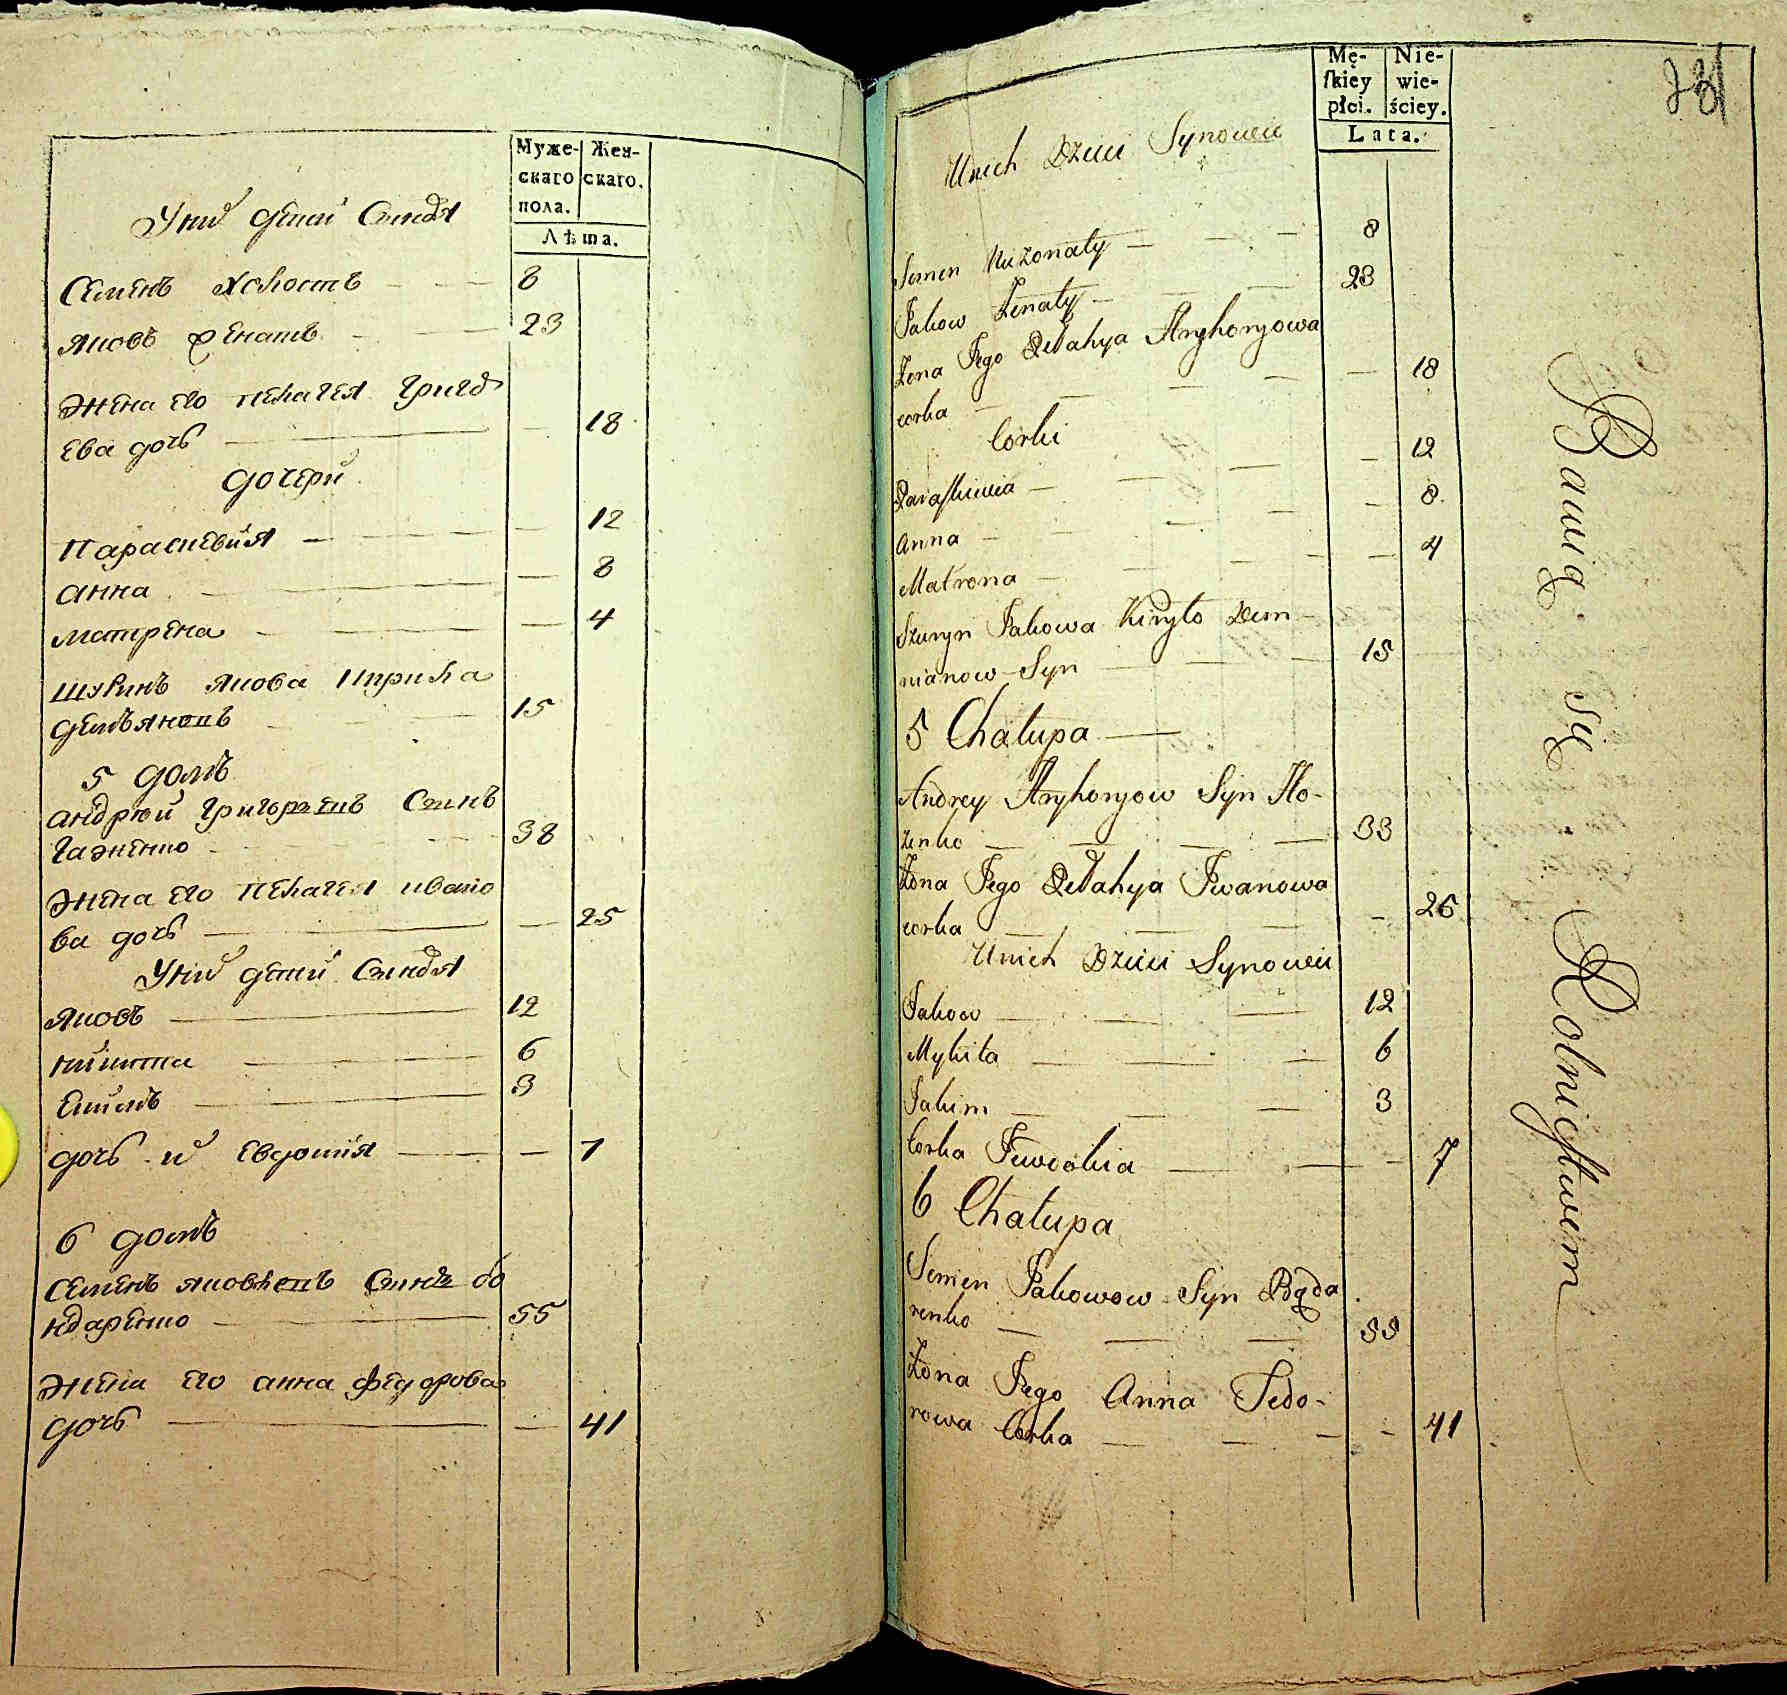 Муже- Жен-
скаго скаго.
пола.
Лѣта.
У них дети Синовя
Семенъ холостъ — — — 8
Яковъ женатъ — — 23
Жена его пелагея Григо
ева дочь — — 18
дочери
Параскевия — — 12
анна — — 8
матрена — — 4
шуринъ Якова кирила
демьяновъ — — 15
5 домъ
андрюй Григорьевъ Синъ
Гаженко — — 38
Жена его пелагея ивано
ва дочь — — 25
У них дети Синовя
Яковъ — 12
никита — 6
Екимъ — 3
дочь их Евдокия — — 7
6 домъ
Семенъ яковлевъ Синъ бо
ндаренко — 55
Жена его анна федорова
дочь — — 41
231
Mę- Nie-
skiey wie-
płci. ściey.
Lata.
Unich Dzieci Synowie
Semen Nieżonaty — — — 8
Jakow Żonaty — — 23
Żona Jego Pełahya Hryhoryowa
corka — — — — 18
Corki
Paraskiewia — — — — 12
Anna — — — — 8
Matrona — — — — 4
Szuryn Jakowa Kiryło Dem-
nianow Syn — — 15
5 Chałupa —
Andrey Hryhoryow Syn Ho-
żenko — — — — 33
Żona Jego Pełahya Jwanowa
corka — — — — 25
Unich Dzieci Synowie
Jakow — — — 12
Mykita — — — 6
Jakim — — — 3
Corka Jewdokia — — — 7
6 Chałupa
Semen Jakowow Syn Bąda
renko — — — 55
Żona Jego Anna Fedo-
rowa Corka — — — — 41
Bawią się Rolnictwem